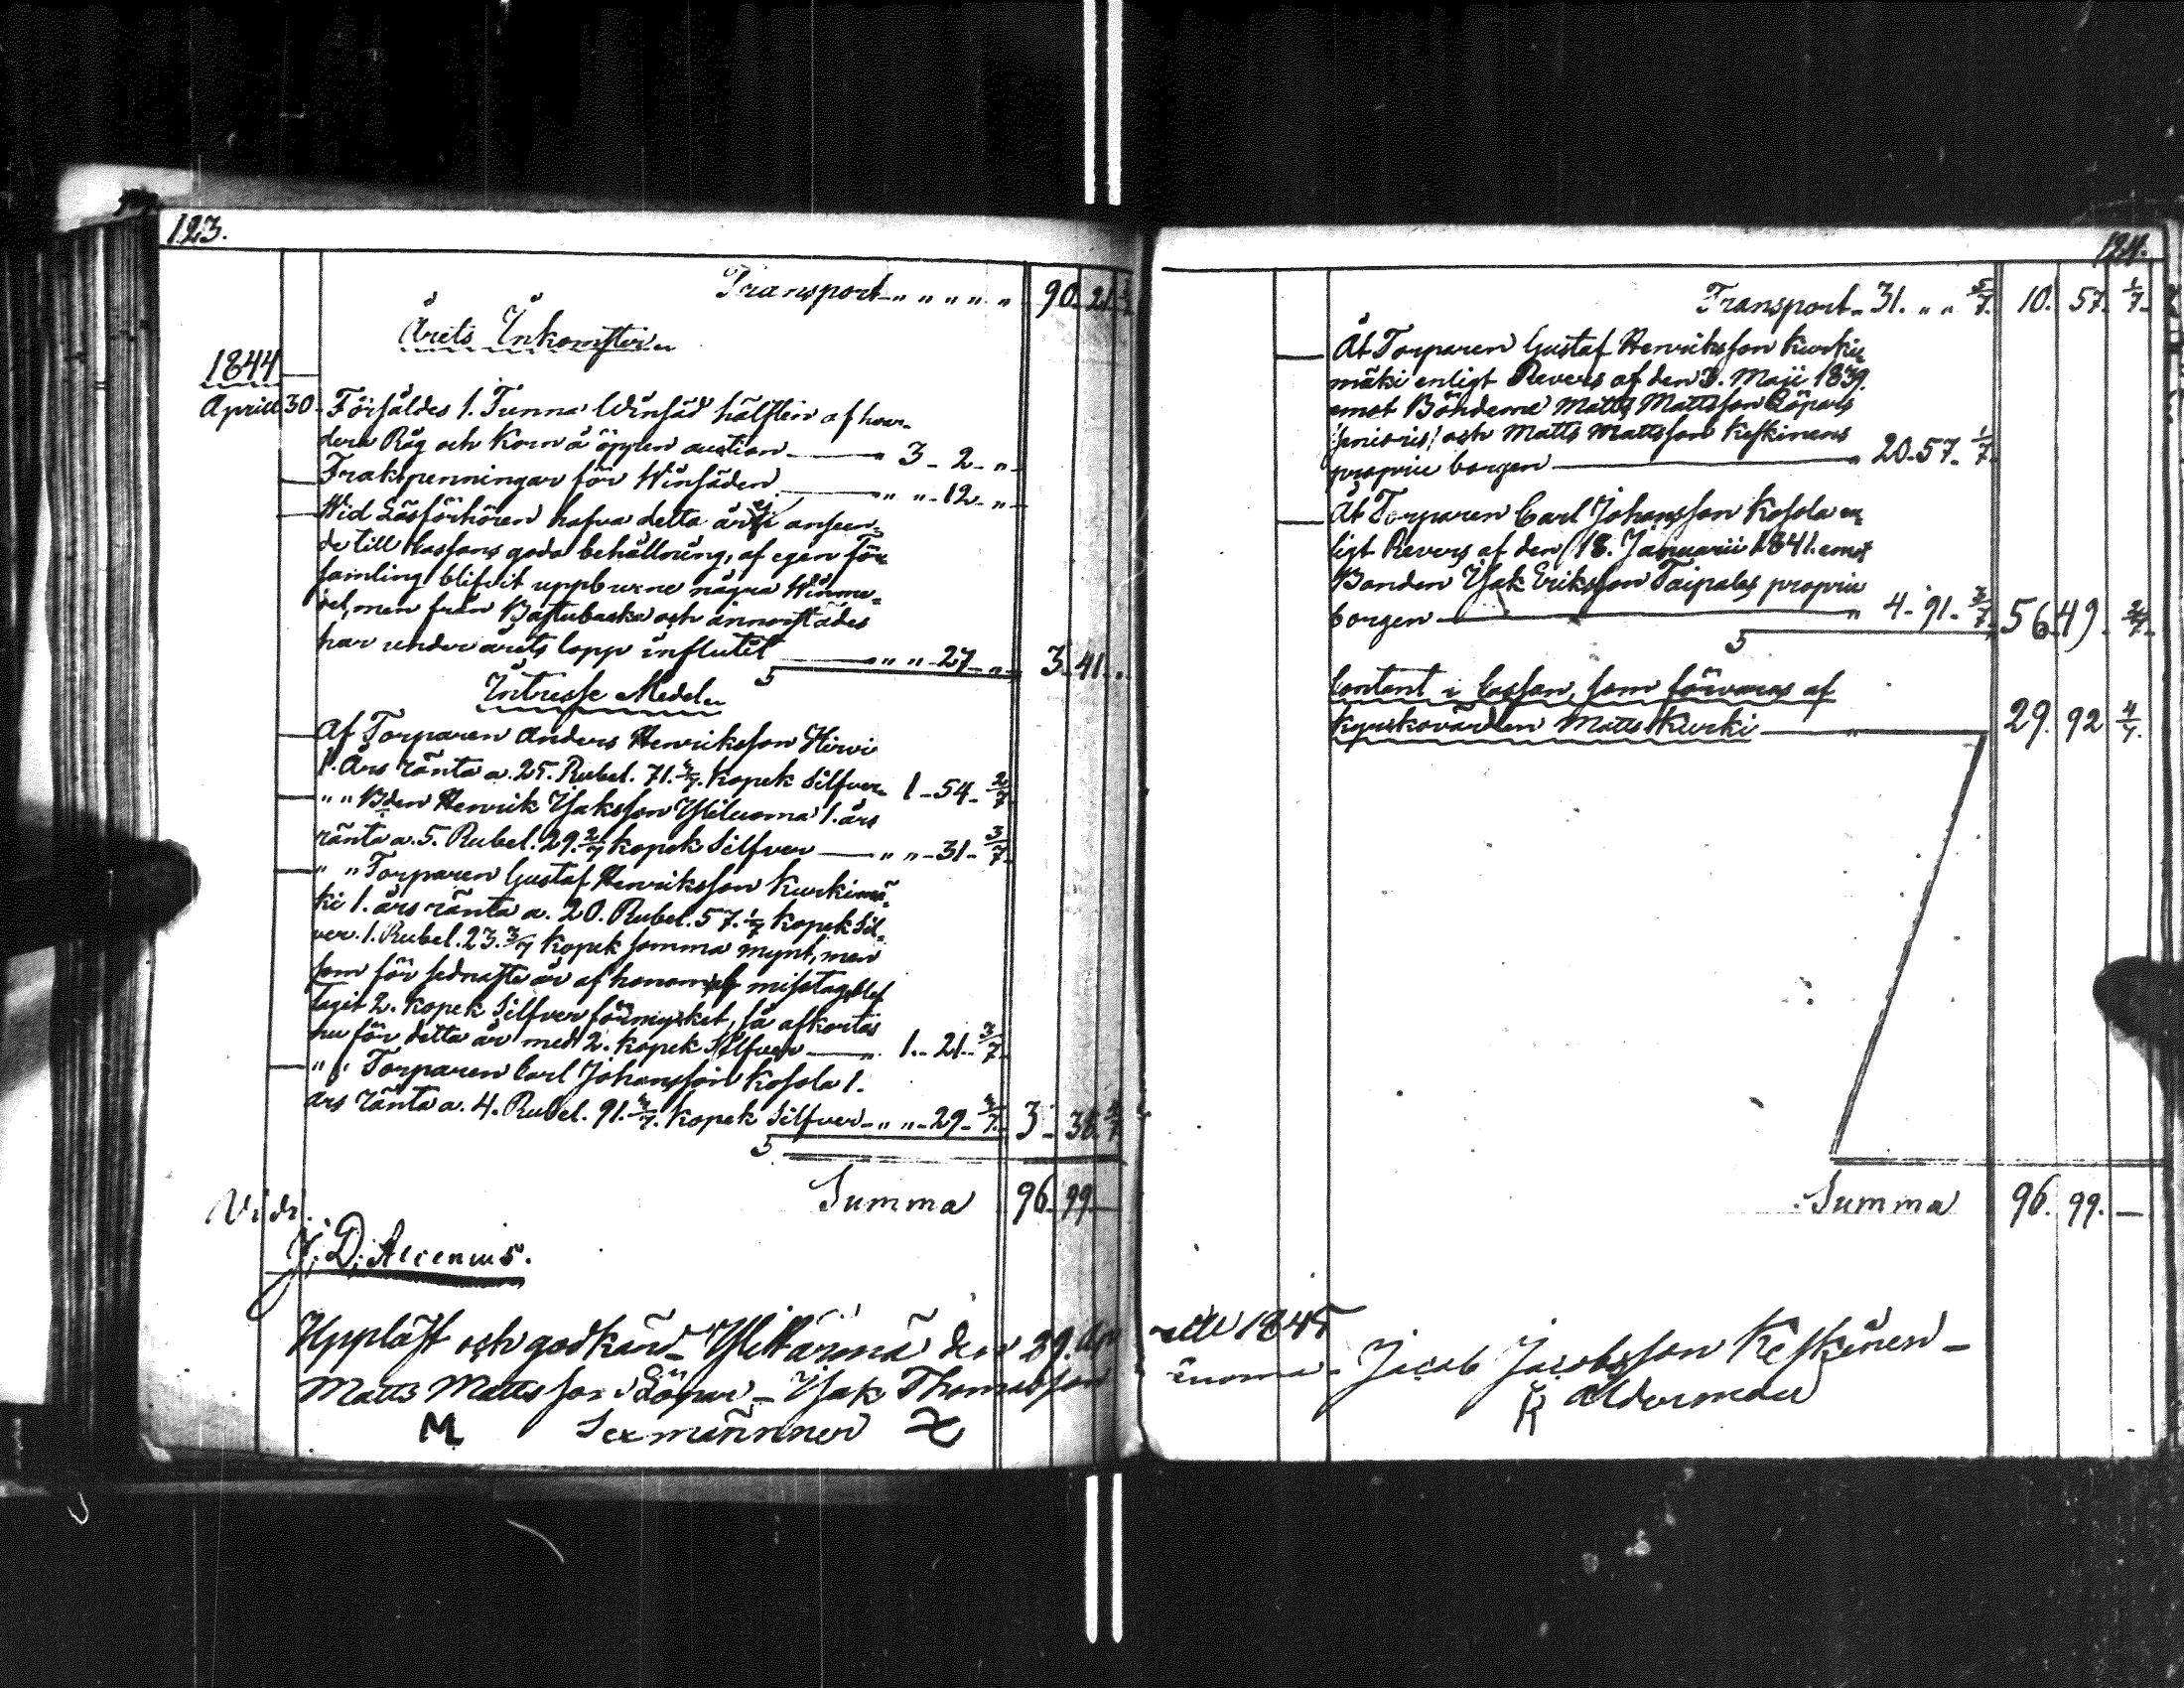 123.
Transport „ „ „ „ „ 90. 21.
Årets Inkomster.
1844
Aprill 30. Försåldes 1. Tunna Winsäd hälften af hvar-
dera Råg och Korn å öppen auction — „ 3 - 2 - „
Fraktpenningar för Winsäden — „ „ - 12 - „
Wid Läsförhören hafva detta år ej anseen-
de till Cassans goda behållning, af egen för-
samling blifvit uppburne några Winme-
del, men från och annorstädes
har under årets lopp influtit — „ „ - 27 - „ 3. 41 „
Intresse Medel.
Af Torparen Anders Henriksson Hirvi
1. Års ränta a. 25. Rubel. 71. 3/7. Kopek Silfver 1 - 54 - 2/7
„ „ Bden Henrik Isaksson Yliluoma 1. års
ränta a. 5. Rubel. 29. 2/7 Kopek Silfver — „ „ - 31 - 3/7
„ „ Torparen Gustaf Henriksson Kurkimä-
ki 1. års ränta a. 20. Rubel. 57. 1/7 Kopek Sil-
ver. 1. Rubel. 23. 3/7 Kopek samma mynt, men
som för sednaste år af honom misstag blef
tagit 2. Kopek Silfver förmycket, så afkortas
nu för detta år med 2. Kopek Silfver — „ 1 - 21 - 3/7
„ „ Torparen Carl Johansson Kosola 1.
års ränta a. 4. Rubel. 91. 3/7. Kopek Silfver - „ „ - 29 - 3/7. 3 - 38. 4/7
Summa 96. 99 —
Vidi.
J. D. Alcenius.
Uppläst och godkänd Ylihärmä den 29. Ap
Matts Mattsson Löpari - Isak Thomasson
M Sexmänner
124.
Transport - 31. „ „ 5/7. 10. 57. 1/7.
Åt Torparen Gustaf Henriksson Kurki-
mäki enligt Revers af den 3. Maji 1839.
emot Bönderne Matts Mattsson Löpars
senioris! och Matts Mattsson Keskinens
proprie borgen — „ 20. 57. 1/7.
Åt Torparen Carl Johansson Kosola en-
ligt Revers af den 18. Januarii 1841. emot
Bonden Isak Eriksson Taipales proprie
borgen — „ 4 - 91 - 3/7. 56. 49. 3/7.
Contant i Cassan, som förvaras af
Kyrkovärden Matts Kurki — „ 29. 92 4/7.
Summa 96. 99. —
rill 1845
inoma - Jacob Jacobsson Keskinen -
Ålderman